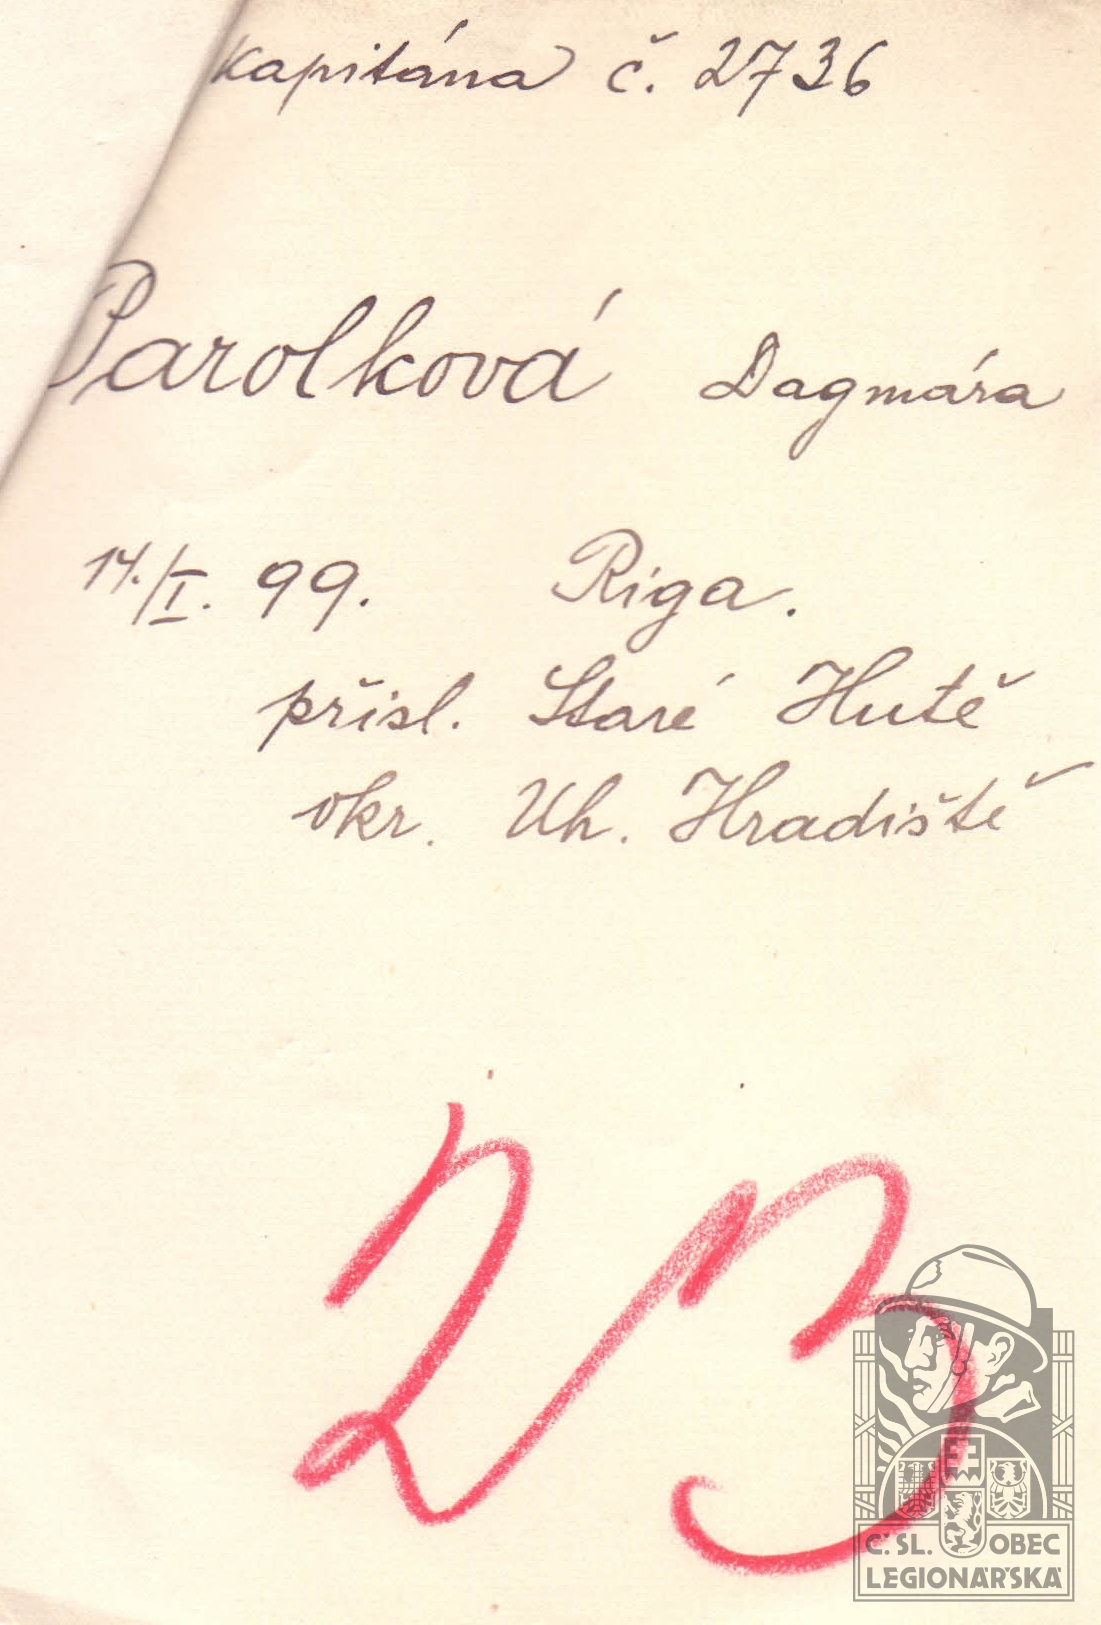 kapitána č. 2736
Parolková Dagmára
14./I. 99. Riga.
přísl. Staré Hutě
okr. Uh. Hradiště
23
Č. SL. OBEC
LEGIONÁŘSKÁ